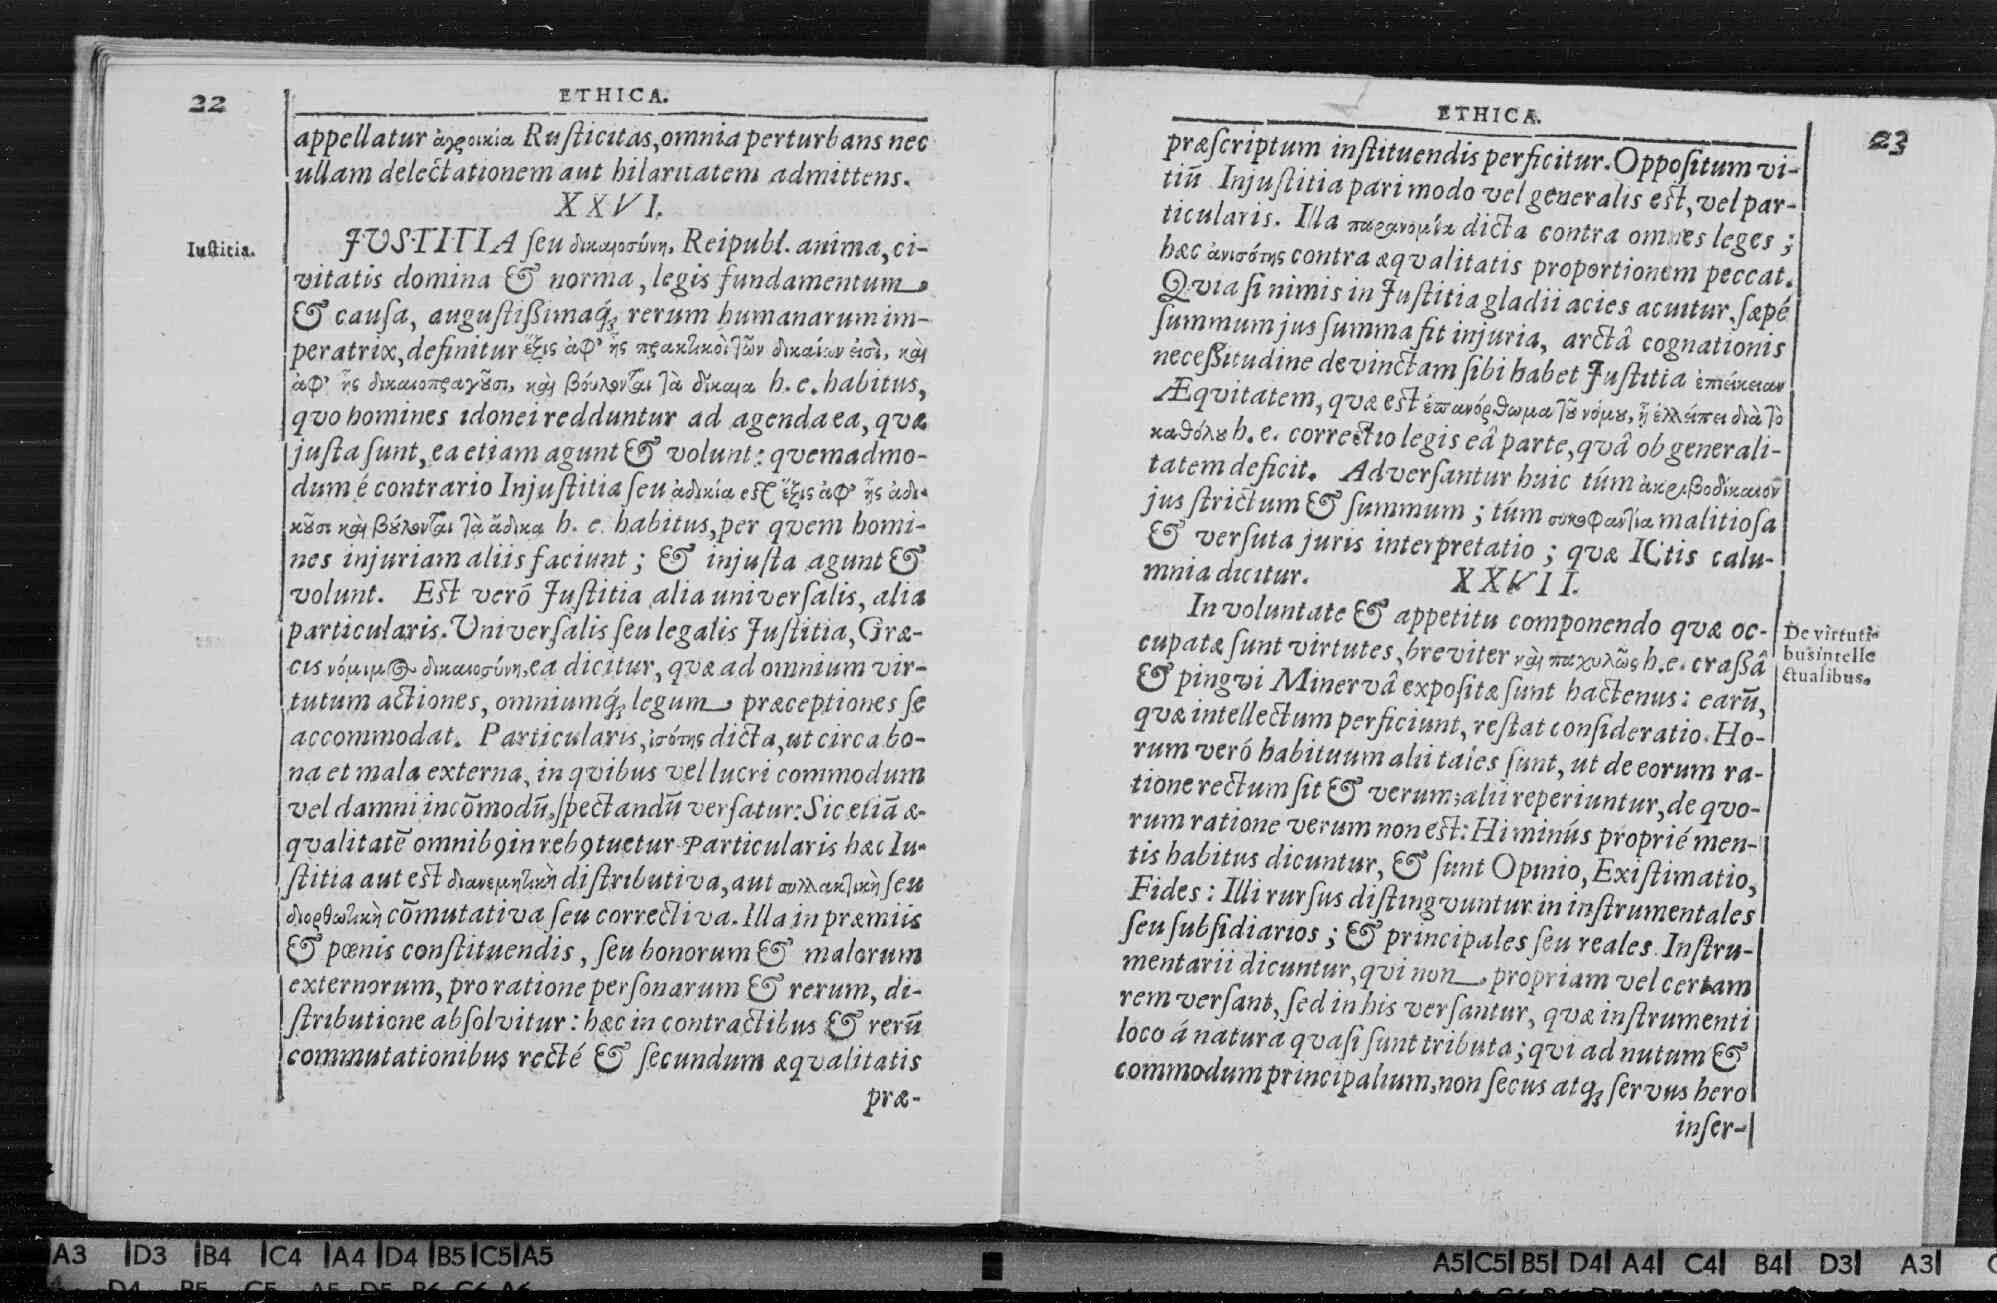 22
ETHICA.
appellatur ἀγροικία Ruſticitas, omnia perturbans nec
ullam delectationem aut hilaritatem admittens.
XXVI.
Iuſticia.
JUSTITIA ſeu δικαιοσύνη, Reipubl. anima, ci-
vitatis domina & norma, legis fundamentum
& cauſa, auguſtiſſimaq́; rerum humanarum im-
peratrix, definitur ἕξις ἀφ' ἧς πρακτικοὶ τῶν δικαίων εἰσὶ, καὶ
ἀφ' ἧς δικαιοπραγοῦσι, καὶ βούλονται τὰ δίκαια h. e. habitus,
qvo homines idonei redduntur ad agenda ea, qvæ
juſta ſunt, ea etiam agunt & volunt: qvemadmo-
dum é contrario Injuſtitia ſeu ἀδικία est ἕξις ἀφ' ἧς ἀδι-
κοῦσι καὶ βούλονται τὰ ἄδικα h. e. habitus, per qvem homi-
nes injuriam aliis faciunt; & injuſta agunt &
volunt. Est verō Juſtitia alia univerſalis, alia
particularis. Univerſalis ſeu legalis Juſtitia, Græ-
cis νόμιμος δικαιοσύνη, ea dicitur, qvæ ad omnium vir-
tutum actiones, omniumq́; legum præceptiones ſe
accommodat. Particularis, ἰσότης dicta, ut circa bo-
na et mala externa, in qvibus vel lucri commodum
vel damni incōmodū, ſpectandū verſatur: Sic etiā æ-
qvalitatē omnibꝰ in rebꝰ tuetur Particularis hæc Iu-
ſtitia aut est διανεμητικὴ diſtributiva, aut συλλακτικὴ ſeu
διορθωτικὴ cōmutativa ſeu correctiva. Illa in præmiis
& pœnis conſtituendis, ſeu bonorum & malorum
externorum, pro ratione perſonarum & rerum, di-
ſtributione abſolvitur: hæc in contractibus & rerū
commutationibus recté & ſecundum æqvalitatis
præ-
ETHICA.
23
præſcriptum inſtituendis perficitur. Oppoſitum vi-
tiū Injuſtitia pari modo vel generalis est, vel par-
ticularis. Illa παρανομία dicta contra omnes leges;
hæc ἀνισότης contra æqvalitatis proportionem peccat.
Qvia ſi nimis in Juſtitia gladii acies acuitur, ſæpé
ſummum jus ſumma fit injuria, arctâ cognationis
neceſſitudine devinctam ſibi habet Juſtitia ἐπιείκειαν
Æqvitatem, qvæ est ἐπανόρθωμα τοῦ νόμου, ᾗ ἐλλείπει διὰ τὸ
καθόλου h. e. correctio legis eâ parte, qvâ ob generali-
tatem deficit. Adverſantur huic túm ἀκριβοδίκαιον
jus ſtrictum & ſummum; túm συκοφαντία malitioſa
& verſuta juris interpretatio; qvæ ICtis calu-
mnia dicitur.
XXVII.
In voluntate & appetitu componendo qvæ oc-
cupatæ ſunt virtutes, breviter καὶ παχυλῶς h. e. craſſâ
& pingvi Minervâ expoſitæ ſunt hactenus: earū,
qvæ intellectum perficiunt, reſtat conſideratio. Ho-
rum veró habituum alii tales ſunt, ut de eorum ra-
tione rectum ſit & verum; alii reperiuntur, de qvo-
rum ratione verum non est: Hi minús proprié men-
tis habitus dicuntur, & ſunt Opinio, Exiſtimatio,
Fides: Illi rurſus diſtingvuntur in inſtrumentales
ſeu ſubſidiarios; & principales ſeu reales. Inſtru-
mentarii dicuntur, qvi non propriam vel certam
rem verſant, ſed in his verſantur, qvæ inſtrumenti
loco á natura qvaſi ſunt tributa; qvi ad nutum &
commodum principalium, non ſecus atq; ſervus hero
inſer-
De virtuti-
bus intelle
ctualibus.
A3 D3 B4 C4 A4 D4 B5 C5 A5
A5 C5 B5 D4 A4 C4 B4 D3 A3